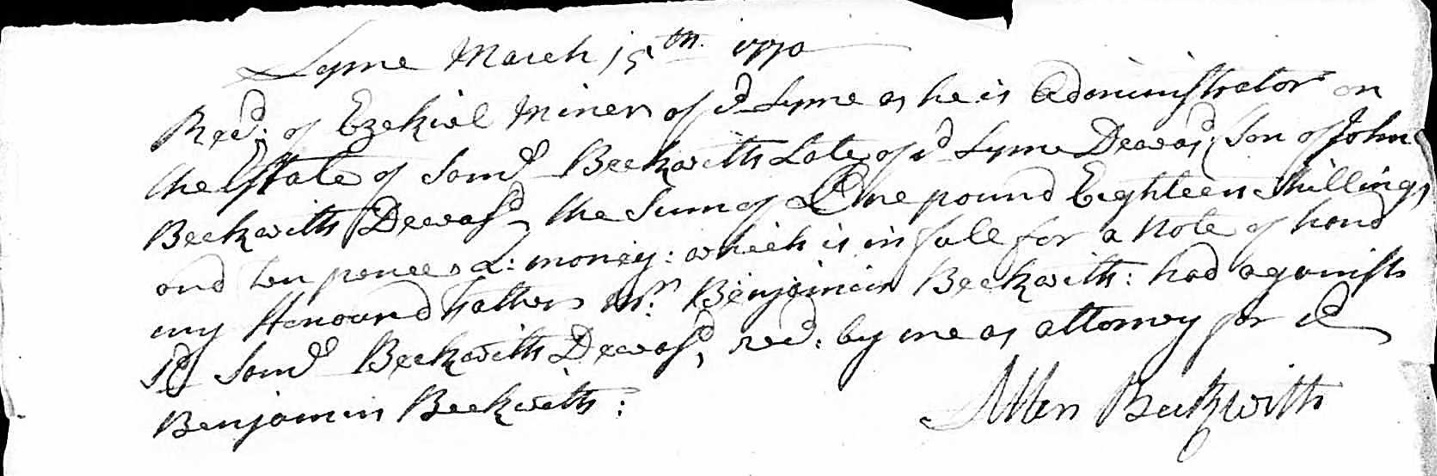 Lyme March 15th. 1770
Recd. of Ezekiel Miner of sd Lyme as he is Administrator on
the Estate of Saml Beckwith Late of sd Lyme Deceasd, Son of John
Beckwith Deceasd the Sum of One pound Eighteen Shillings
and ten pence L: money: which is in full for a Note of hand
my Honourd Father Mr. Benjamin Beckwith: had against
sd Saml Beckwith Deceasd, recd: by me as attorney for sd
Benjamin Beckwith:
Allen Beckwith